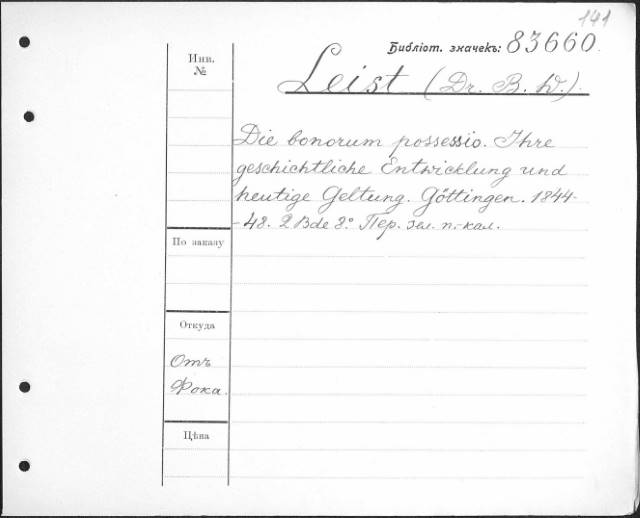 141
Библіот. значекъ: 83660.
Инв.
№
Leist (Dr. B. W.)
Die bonorum possessio. Ihre
geschichtliche Entwicklung und
heutige Geltung. Göttingen. 1844-
-48. 2 Bde 8.° Пер. зел. п.-кал.
По заказу
Откуда
Отъ
Фока.
Цѣна